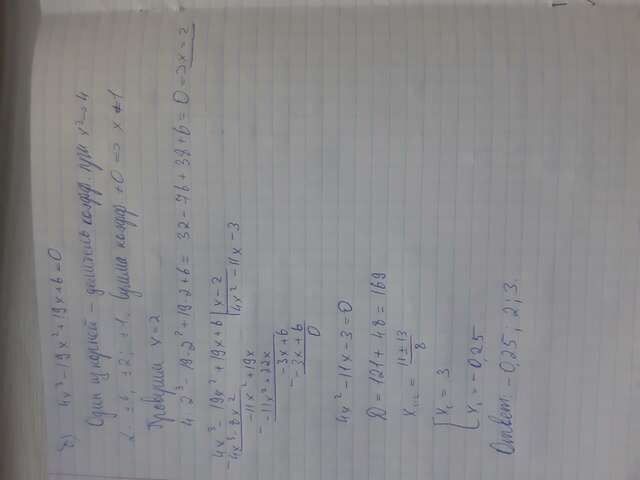 б) 4x³-19x²+19x+6=0
Один из корней - делитель коэфф. при
Сумма коэфф. ≠0 => x≠1
Проверим x=2
4·2³-19·2²+19·2+6=32-76+38+6=0 => x=2
-4x³-19x²+19x+6 | x-2
4x³-8x² | 4x²-11x-3
-11x²+19x
-11x²+22x
-3x+6
-3x+6
0
4x²-11x-3=0
D=121+48=169
x₁,₂=(11±13)/8
[x₁=3
[x₂=-0,25
Ответ: -0,25; 2; 3.